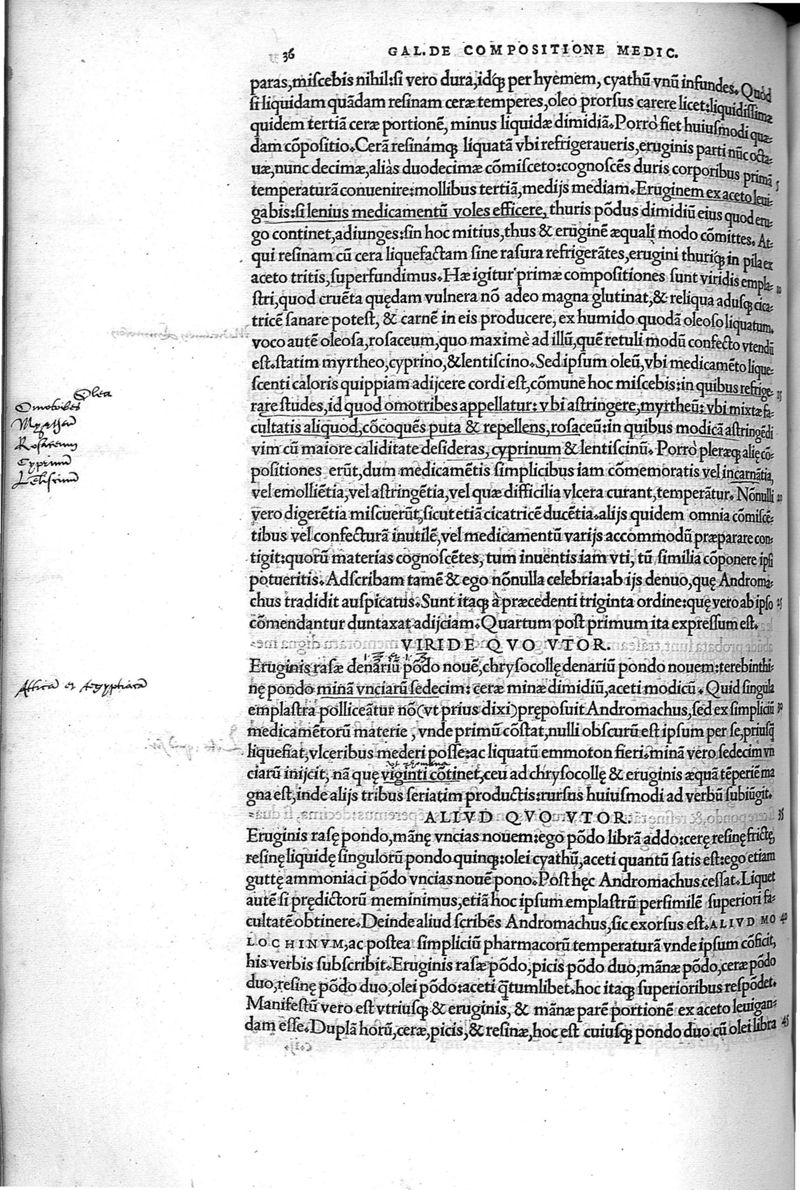 36 GAL. DE COMPOSITIONE MEDIC.
paras,miscebis nihil:si vero dura,idq́; per hyemem, cyathũ vnũ infundes. Quòd
si liquidam quãdam resinam ceræ temperes,oleo prorsus carere licet:liquidissimæ
quidem tertiã ceræ portionẽ, minus liquidæ dimidiã. Porrò fiet huiusmodi quæ-
dam cõpositio. Cerã resinámq; liquatã vbi refrigeraueris,eruginis parti nũc octa-
uæ,nunc decimæ,aliàs duodecimæ cõmisceto:cognoscẽs duris corporibus primã
temperaturã conuenire:mollibus tertiã,medijs mediam. Eruginem ex aceto leui- 5
gabis:si lenius medicamentũ voles efficere, thuris põdus dimidiũ eius quod eru-
go continet,adiunges:sin hoc mitius,thus & eruginẽ æquali modo cõmittes. At-
qui resinam cũ cera liquefactam sine rasura refrigerãtes, erugini thuriq́; in pila ex
aceto tritis,superfundimus. Hæ igitur primæ compositiones sunt viridis empla-
stri,quod cruẽta quędam vulnera nõ adeo magna glutinat,& reliqua adusq; cica- 10
tricẽ sanare potest, & carnẽ in eis producere, ex humido quodã oleoso liquatum,
voco autẽ oleosa,rosaceum,quo maximè ad illũ,quẽ retuli modũ confecto vtendũ
est.statim myrtheo,cyprino,&lentiscino. Sed ipsum oleũ,vbi medicamẽto lique-
scenti caloris quippiam adijcere cordi est,cõmune hoc miscebis:in quibus refrige-
rare studes,id quod omotribes appellatur: vbi astringere,myrtheũ: vbi mixtæ fa- 15
cultatis aliquod,cõcoquẽs puta & repellens,rosaceũ:in quibus modicã astringẽdi
vim cũ maiore caliditate desideras, cyprinum & lentiscinũ. Porrò pleræq; alię cõ-
positiones erũt,dum medicamẽtis simplicibus iam cõmemoratis vel incarnãtia,
vel emolliẽtia,vel astringẽtia,vel quæ difficilia vlcera curant,temperãtur. Nõnulli
vero digerẽtia miscuerũt,sicut etiã cicatricẽ ducẽtia.alijs quidem omnia cõmiscẽ- 20
tibus vel confecturã inutilẽ,vel medicamentũ varijs accommodũ præparare con-
tigit:quorũ materias cognoscẽtes, tum inuentis iam vti, tũ similia cõponere ipsi
potueritis. Adscribam tamẽ & ego nõnulla celebria:ab ijs denuo,quę Androma-
chus tradidit auspicatus. Sunt itaq; à præcedenti triginta ordine:quę vero ab ipso 25
cõmendantur duntaxat adijciam. Quartum post primum ita expressum est.
VIRIDE QVO VTOR.
Eruginis rasæ denariũ põdo nouẽ,chrysocollę denariũ pondo nouem:terebinthi-
nę pondo minã vnciarũ sedecim: ceræ minæ dimidiũ,aceti modicũ. Quid singula
emplastra polliceãtur nõ(vt prius dixi)pręposuit Andromachus,sed ex simpliciũ 30
medicamẽtorũ materie, vnde primũ cõstat,nulli obscurũ est ipsum per se,priusq̃
liquefiat,vlceribus mederi posse:ac liquatũ emmoton fieri.minã vero sedecim vn
ciarũ inijcit, nã quę viginti cõtinet,ceu ad chrysocollę & eruginis æquã tẽperiẽ ma
gna est,inde alijs tribus seriatim productis:rursus huiusmodi ad verbũ subiũgit.
ALIVD QVO VTOR. 35
Eruginis rasę pondo,mãnę vncias nouem:ego põdo librã addo:cerę resinę frictę,
resinę liquidę singulorũ pondo quinq;:olei cyathũ,aceti quantũ satis est:ego etiam
guttę ammoniaci põdo vncias nouẽ pono. Post hęc Andromachus cessat. Liquet
autẽ si prędictorũ meminimus,etiã hoc ipsum emplastrũ persimilẽ superiori fa-
cultatẽ obtinere. Deinde aliud scribẽs Andromachus,sic exorsus est. ALIVD MO 40
LOCHINVM,ac postea simpliciũ pharmacorũ temperaturã vnde ipsum cõficit,
his verbis subscribit. Eruginis rasæ põdo,picis põdo duo,mãnæ põdo,ceræ põdo
duo,resinę põdo duo,olei põdo:aceti q̃tumlibet.hoc itaq; superioribus respõdet.
Manifestũ vero est vtriusq; & eruginis, & mãnæ parẽ portionẽ ex aceto leuigan-
dam esse. Duplã horũ,ceræ,picis,& resinæ,hoc est cuiusq; pondo duo cũ olei libra 45
Olea
Omotribes
Rosaceum
Cyprinũ